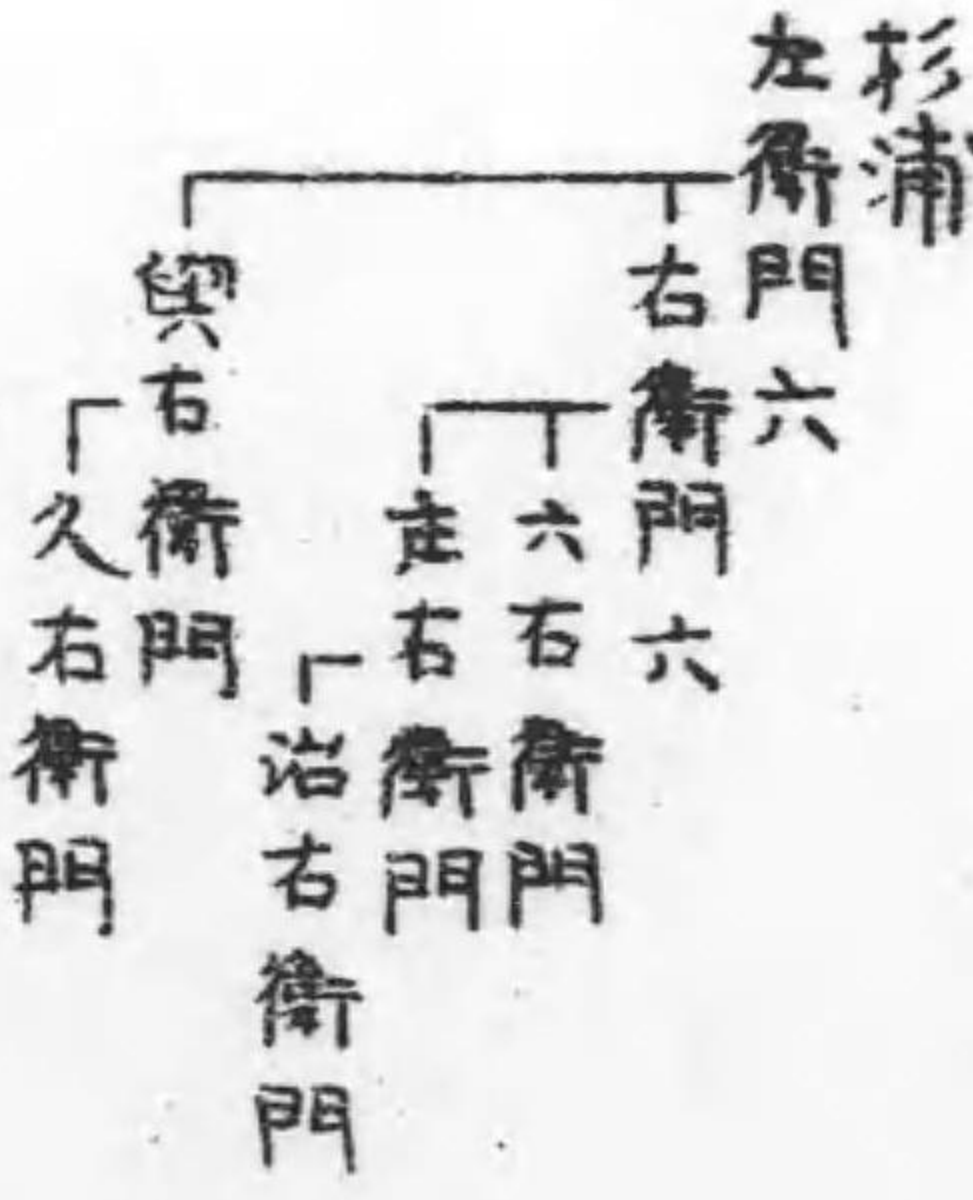 杉浦
左衛門六
右衛門六
六右衛門
走右衛門
治右衛門
與右衛門
久右衛門